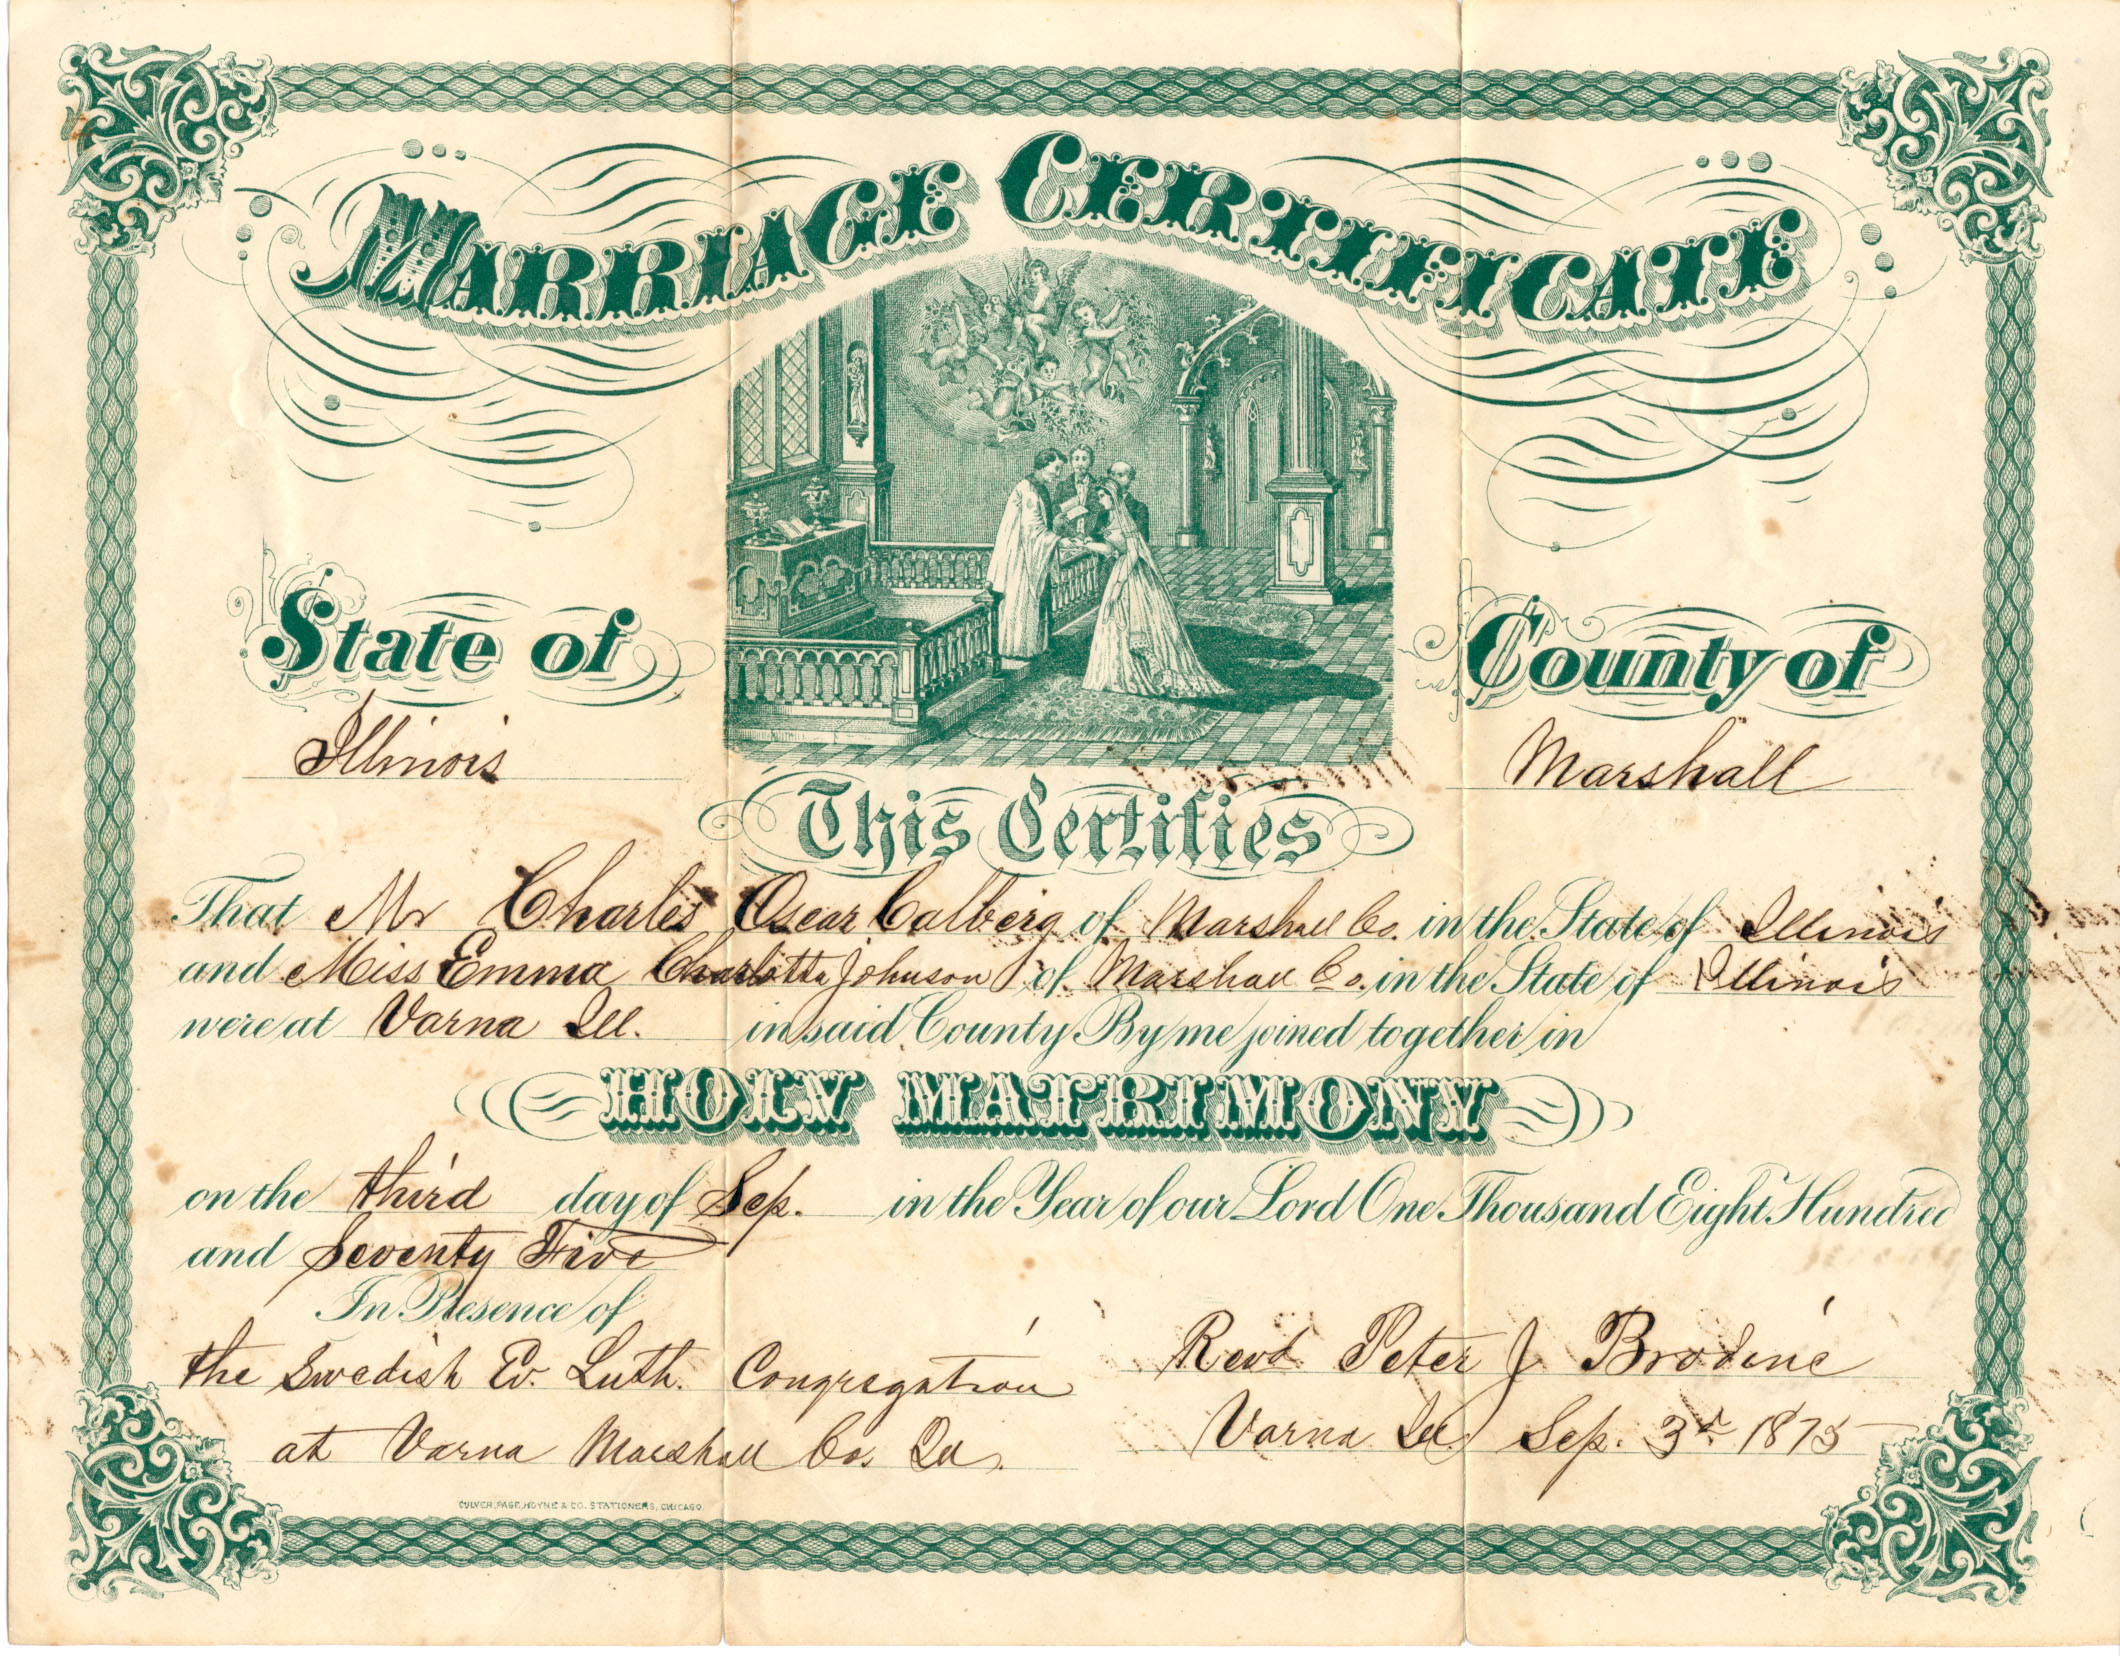 MARRIAGE CERTIFICATE
State of
Illinois
County of
Marshall
This Certifies
That Mr Charles Oscar Calberg of Marshall Co. in the State of Illinois
and Miss Emma Charlotta Johnson of Marshall Co. in the State of Illinois
were at Varna Ill. in said County By me joined together in
HOLY MATRIMONY
on the third day of Sep. in the Year of our Lord One Thousand Eight Hundred
and Seventy Five
In Presence of
the Swedish Ev. Luth. Congregation
at Varna Marshall Co. Ill.
Revd. Peter J Brodine
Varna Ill Sep. 3d 1875
CULVER, PAGE, HOYNE & CO. STATIONERS, CHICAGO.